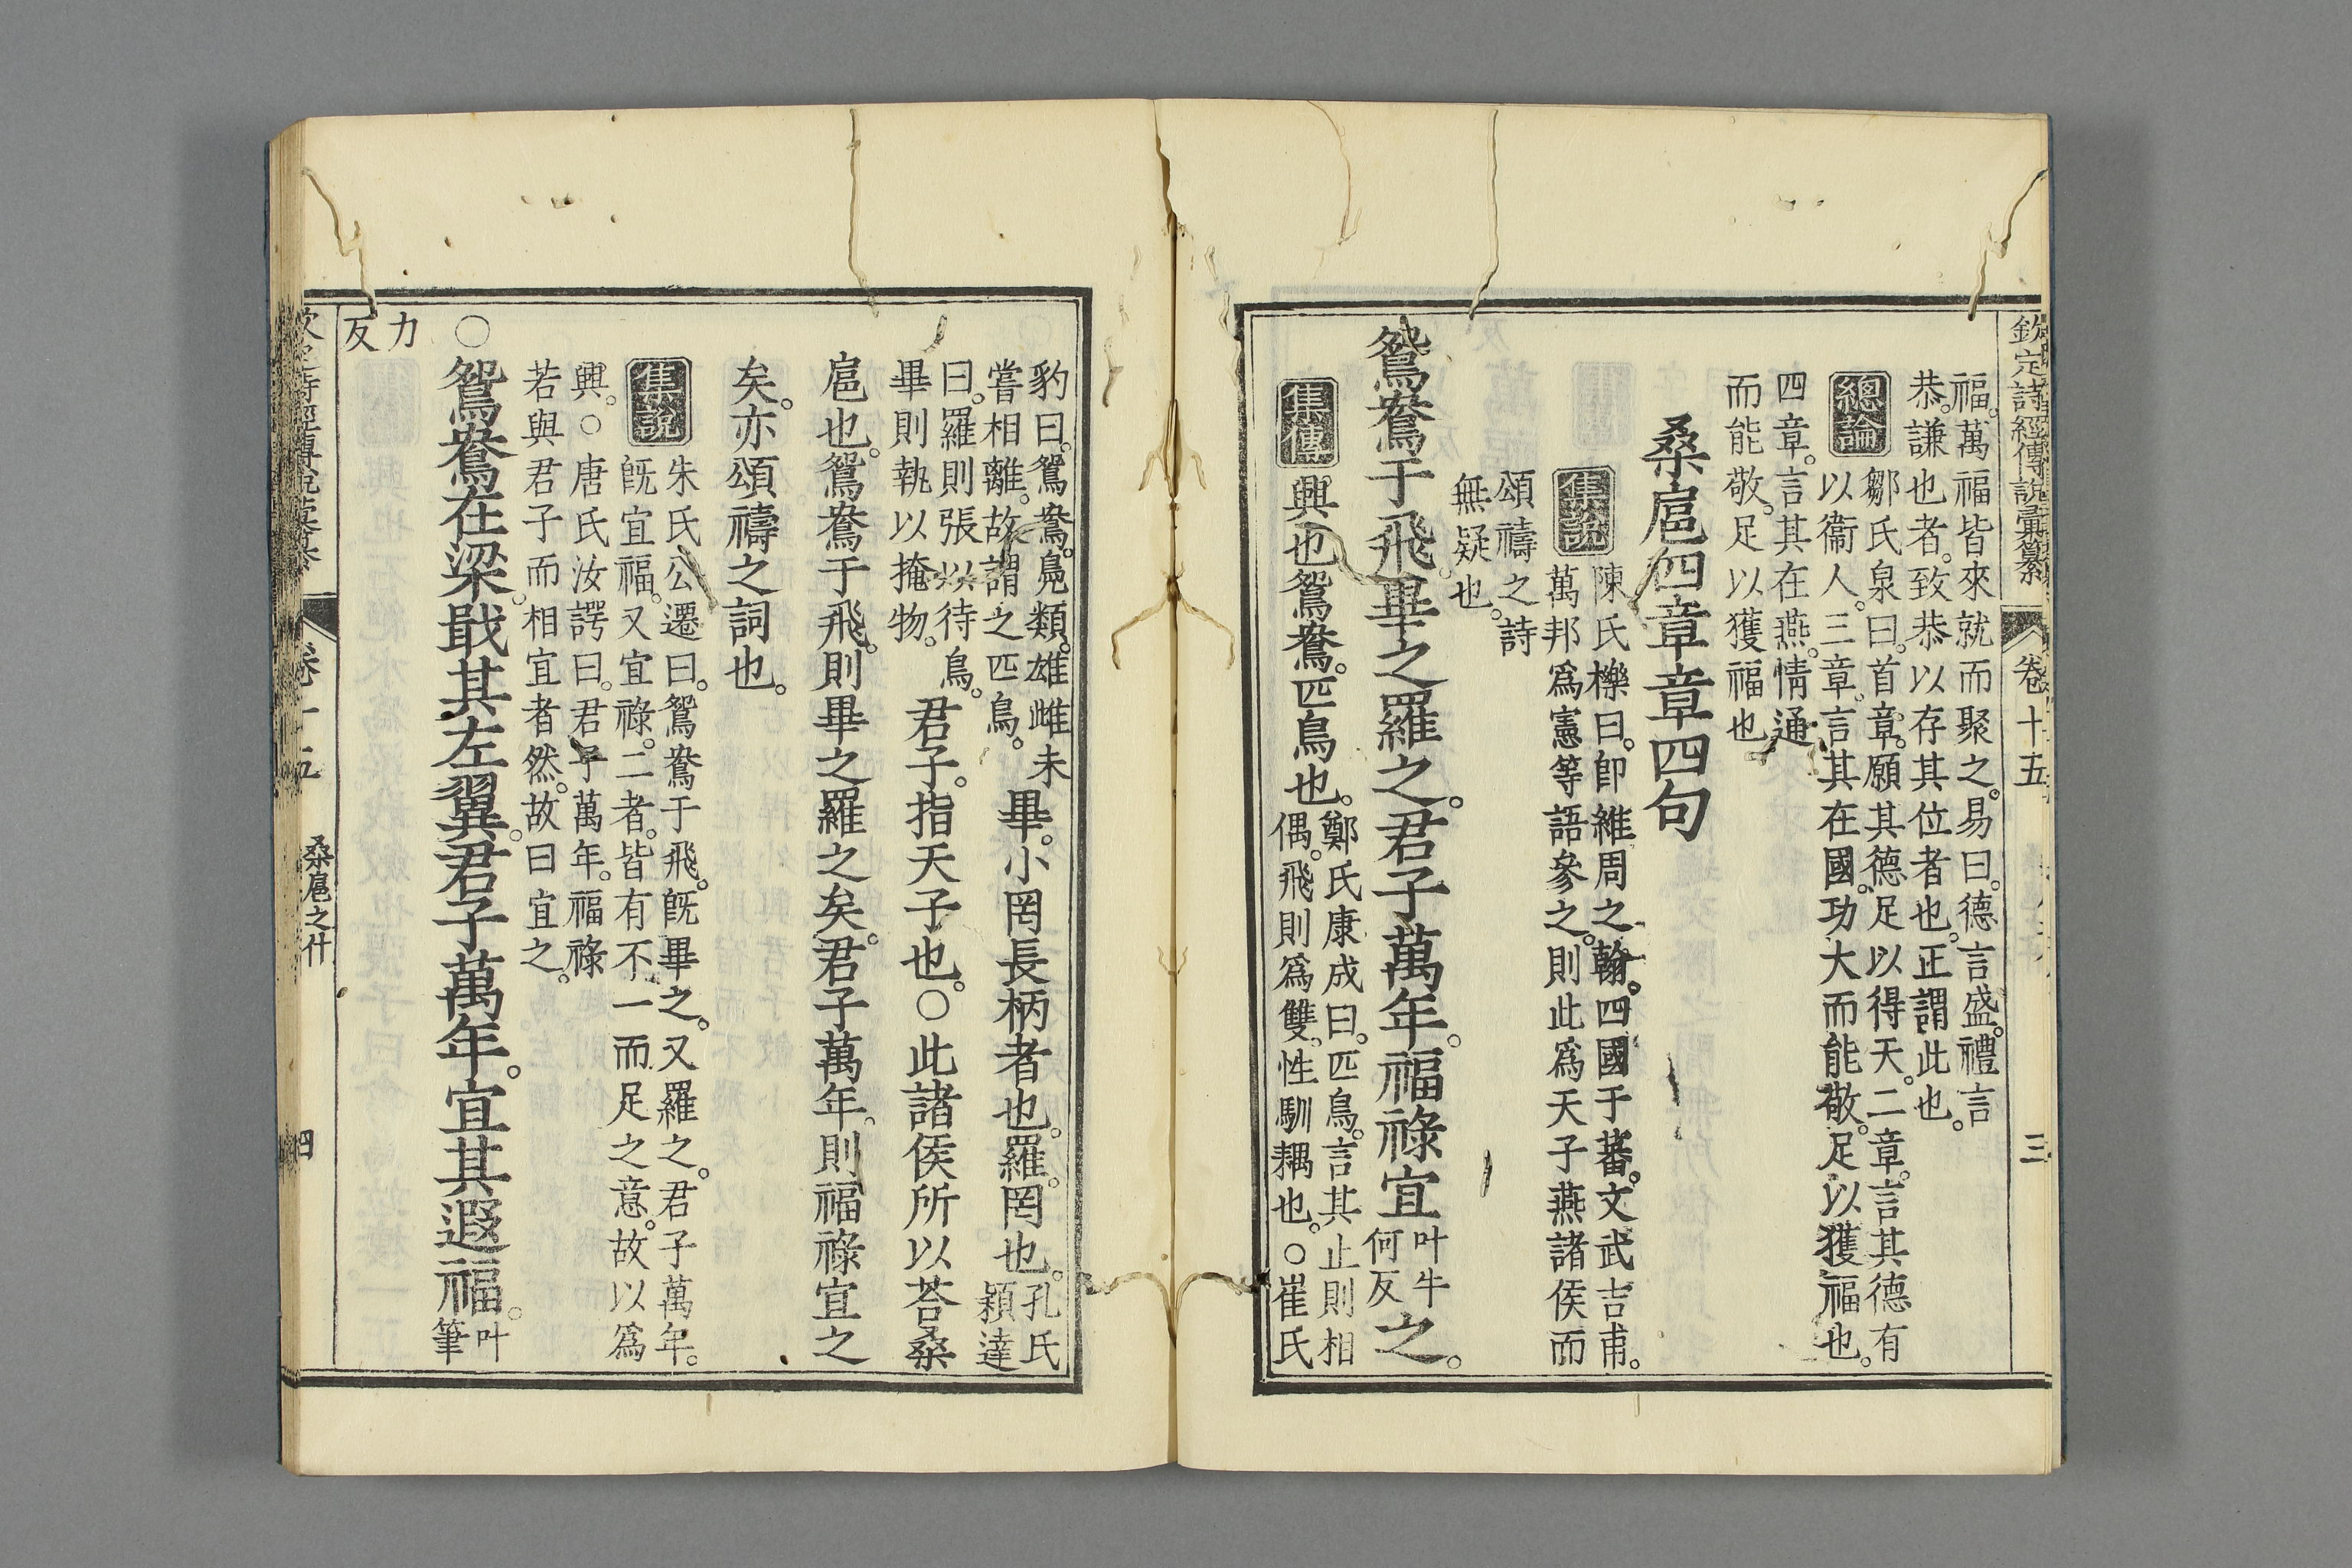 欽定詩經傳說彙纂 卷十五 三
福。萬福皆來就而聚之。易曰。德言盛。禮言
恭。謙也者。致恭以存其位者也。正謂此也。
總論
鄒氏泉曰。首章。願其德足以得天。二章。言其德有
以衞人。三章。言其在國。功大而能敬。足以獲福也。
四章。言其在燕。情通
而能敬。足以獲福也
桑扈四章章四句
集說
陳氏櫟曰。卽維周之翰。四國于蕃。文武吉甫。
萬邦爲憲等語參之。則此爲天子燕諸侯而
頌禱之詩
無疑也。
鴛鴦于飛。畢之羅之。君子萬年。福祿宜
叶牛
何反
之。
集傳
興也。鴛鴦。匹鳥也。
鄭氏康成曰。匹鳥。言其止則相
偶。飛則爲雙。性馴耦也。○崔氏
豹曰。鴛鴦。鳧類。雄雌未
嘗相離。故謂之匹鳥。
畢。小罔長柄者也。羅。罔也。
孔氏
穎達
曰。羅則張以待鳥。
畢則執以掩物。
君子。指天子也。○此諸侯所以荅桑
扈也。鴛鴦于飛。則畢之羅之矣。君子萬年。則福祿宜之
矣。亦頌禱之詞也。
集說
朱氏公遷曰。鴛鴦于飛。旣畢之。又羅之。君子萬年。
旣宜福。又宜祿。二者。皆有不一而足之意。故以爲
興。○唐氏汝諤曰。君子萬年。福祿
若與君子而相宜者然。故曰宜之。
○鴛鴦在梁。戢其左翼。君子萬年。宜其遐福。
叶
筆
力
反
卷十五 桑扈之什 四